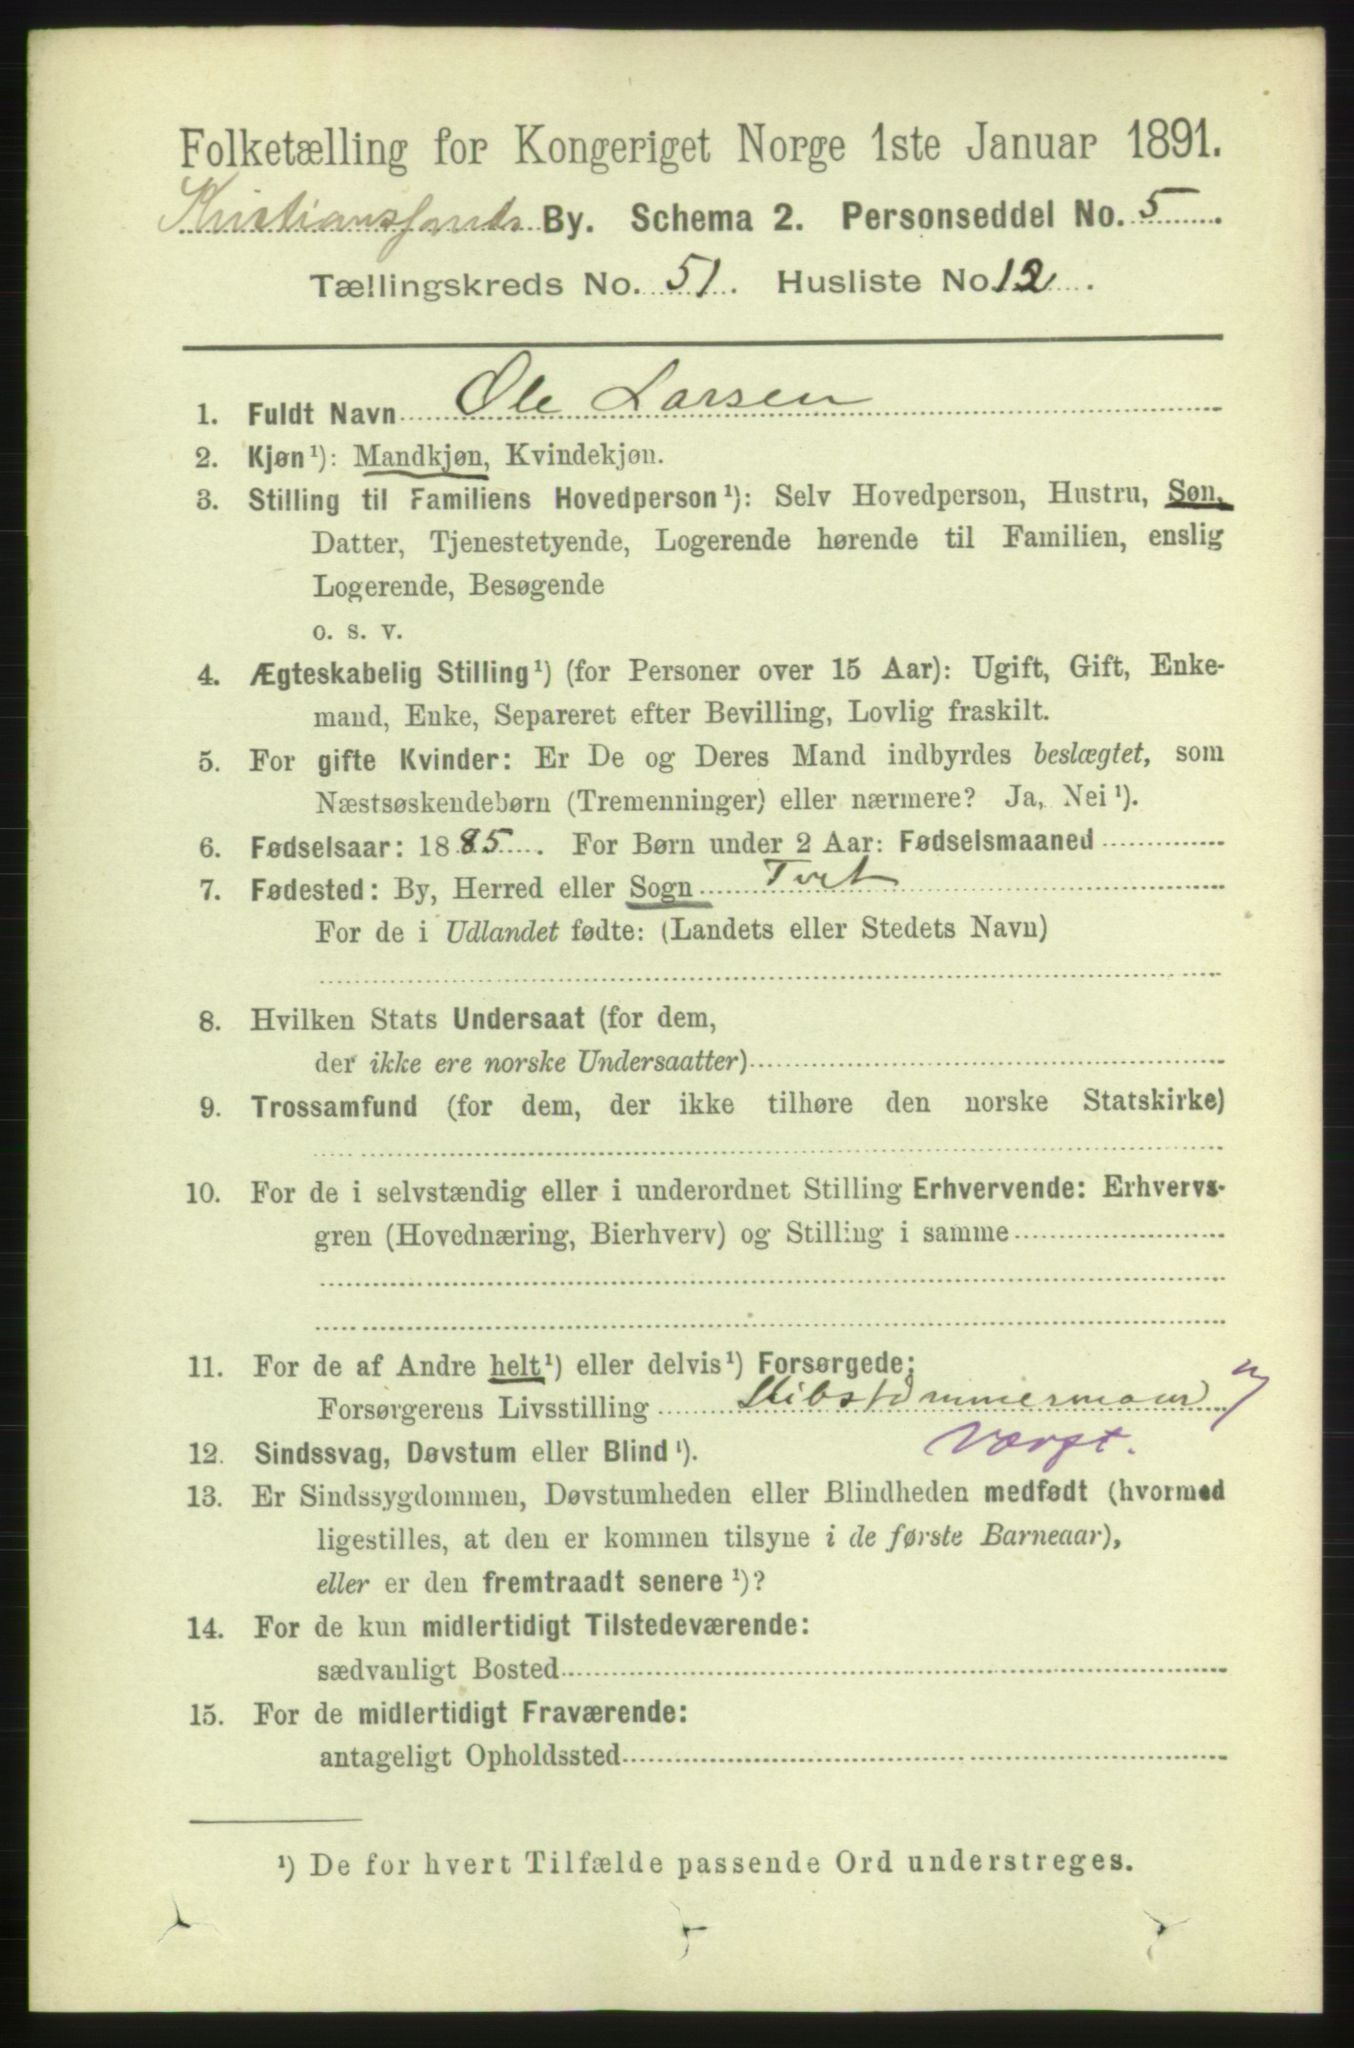 Folketælling for Kongeriget Norge 1ste Januar 1891.
Kristianssands By. Schema 2. Personseddel No. 5.
Tællingskreds No. 51. Husliste No 12.
1. Fuldt Navn Ole Larsen
2. Kjøn¹): Mandkjøn, Kvindekjøn.
3. Stilling til Familiens Hovedperson¹): Selv Hovedperson, Hustru, Søn,
Datter, Tjenestetyende, Logerende hørende til Familien, enslig
Logerende, Besøgende
o. s. v.
4. Ægteskabelig Stilling¹) (for Personer over 15 Aar): Ugift, Gift, Enke-
mand, Enke, Separeret efter Bevilling, Lovlig fraskilt.
5. For gifte Kvinder: Er De og Deres Mand indbyrdes beslægtet, som
Næstsøskendebørn (Tremenninger) eller nærmere? Ja, Nei¹).
6. Fødselsaar: 1885. For Børn under 2 Aar: Fødselsmaaned
7. Fødested: By, Herred eller Sogn Tvet
For de i Udlandet fødte: (Landets eller Stedets Navn)
8. Hvilken Stats Undersaat (for dem,
der ikke ere norske Undersaatter)
9. Trossamfund (for dem, der ikke tilhøre den norske Statskirke)
10. For de i selvstændig eller i underordnet Stilling Erhvervende: Erhvervs-
gren (Hovednæring, Bierhverv) og Stilling i samme
11. For de af Andre helt¹) eller delvis¹) Forsørgede:
Forsørgerens Livsstilling Skibstømmermand
Værft.
12. Sindssvag, Døvstum eller Blind¹).
13. Er Sindssygdommen, Døvstumheden eller Blindheden medfødt (hvormed
ligestilles, at den er kommen tilsyne i de første Barneaar),
eller er den fremtraadt senere¹)?
14. For de kun midlertidigt Tilstedeværende:
sædvanligt Bosted
15. For de midlertidigt Fraværende:
antageligt Opholdssted
¹) De for hvert Tilfælde passende Ord understreges.